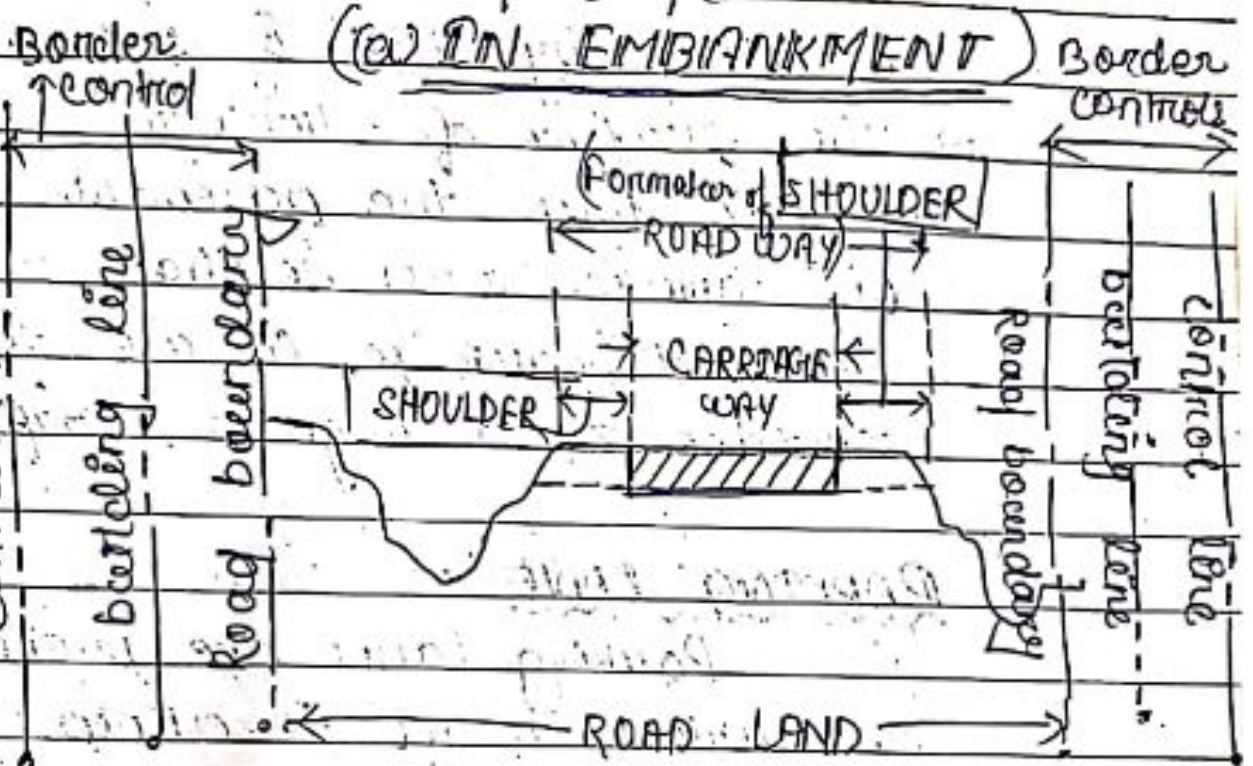 ((a) IN EMBANKMENT)
Border
control
Border
controls
(Formation of SHOULDER
ROAD WAY)
CARRIAGE
WAY
SHOULDER
building line
Road boundary
Road boundary
building line
control line
ROAD LAND